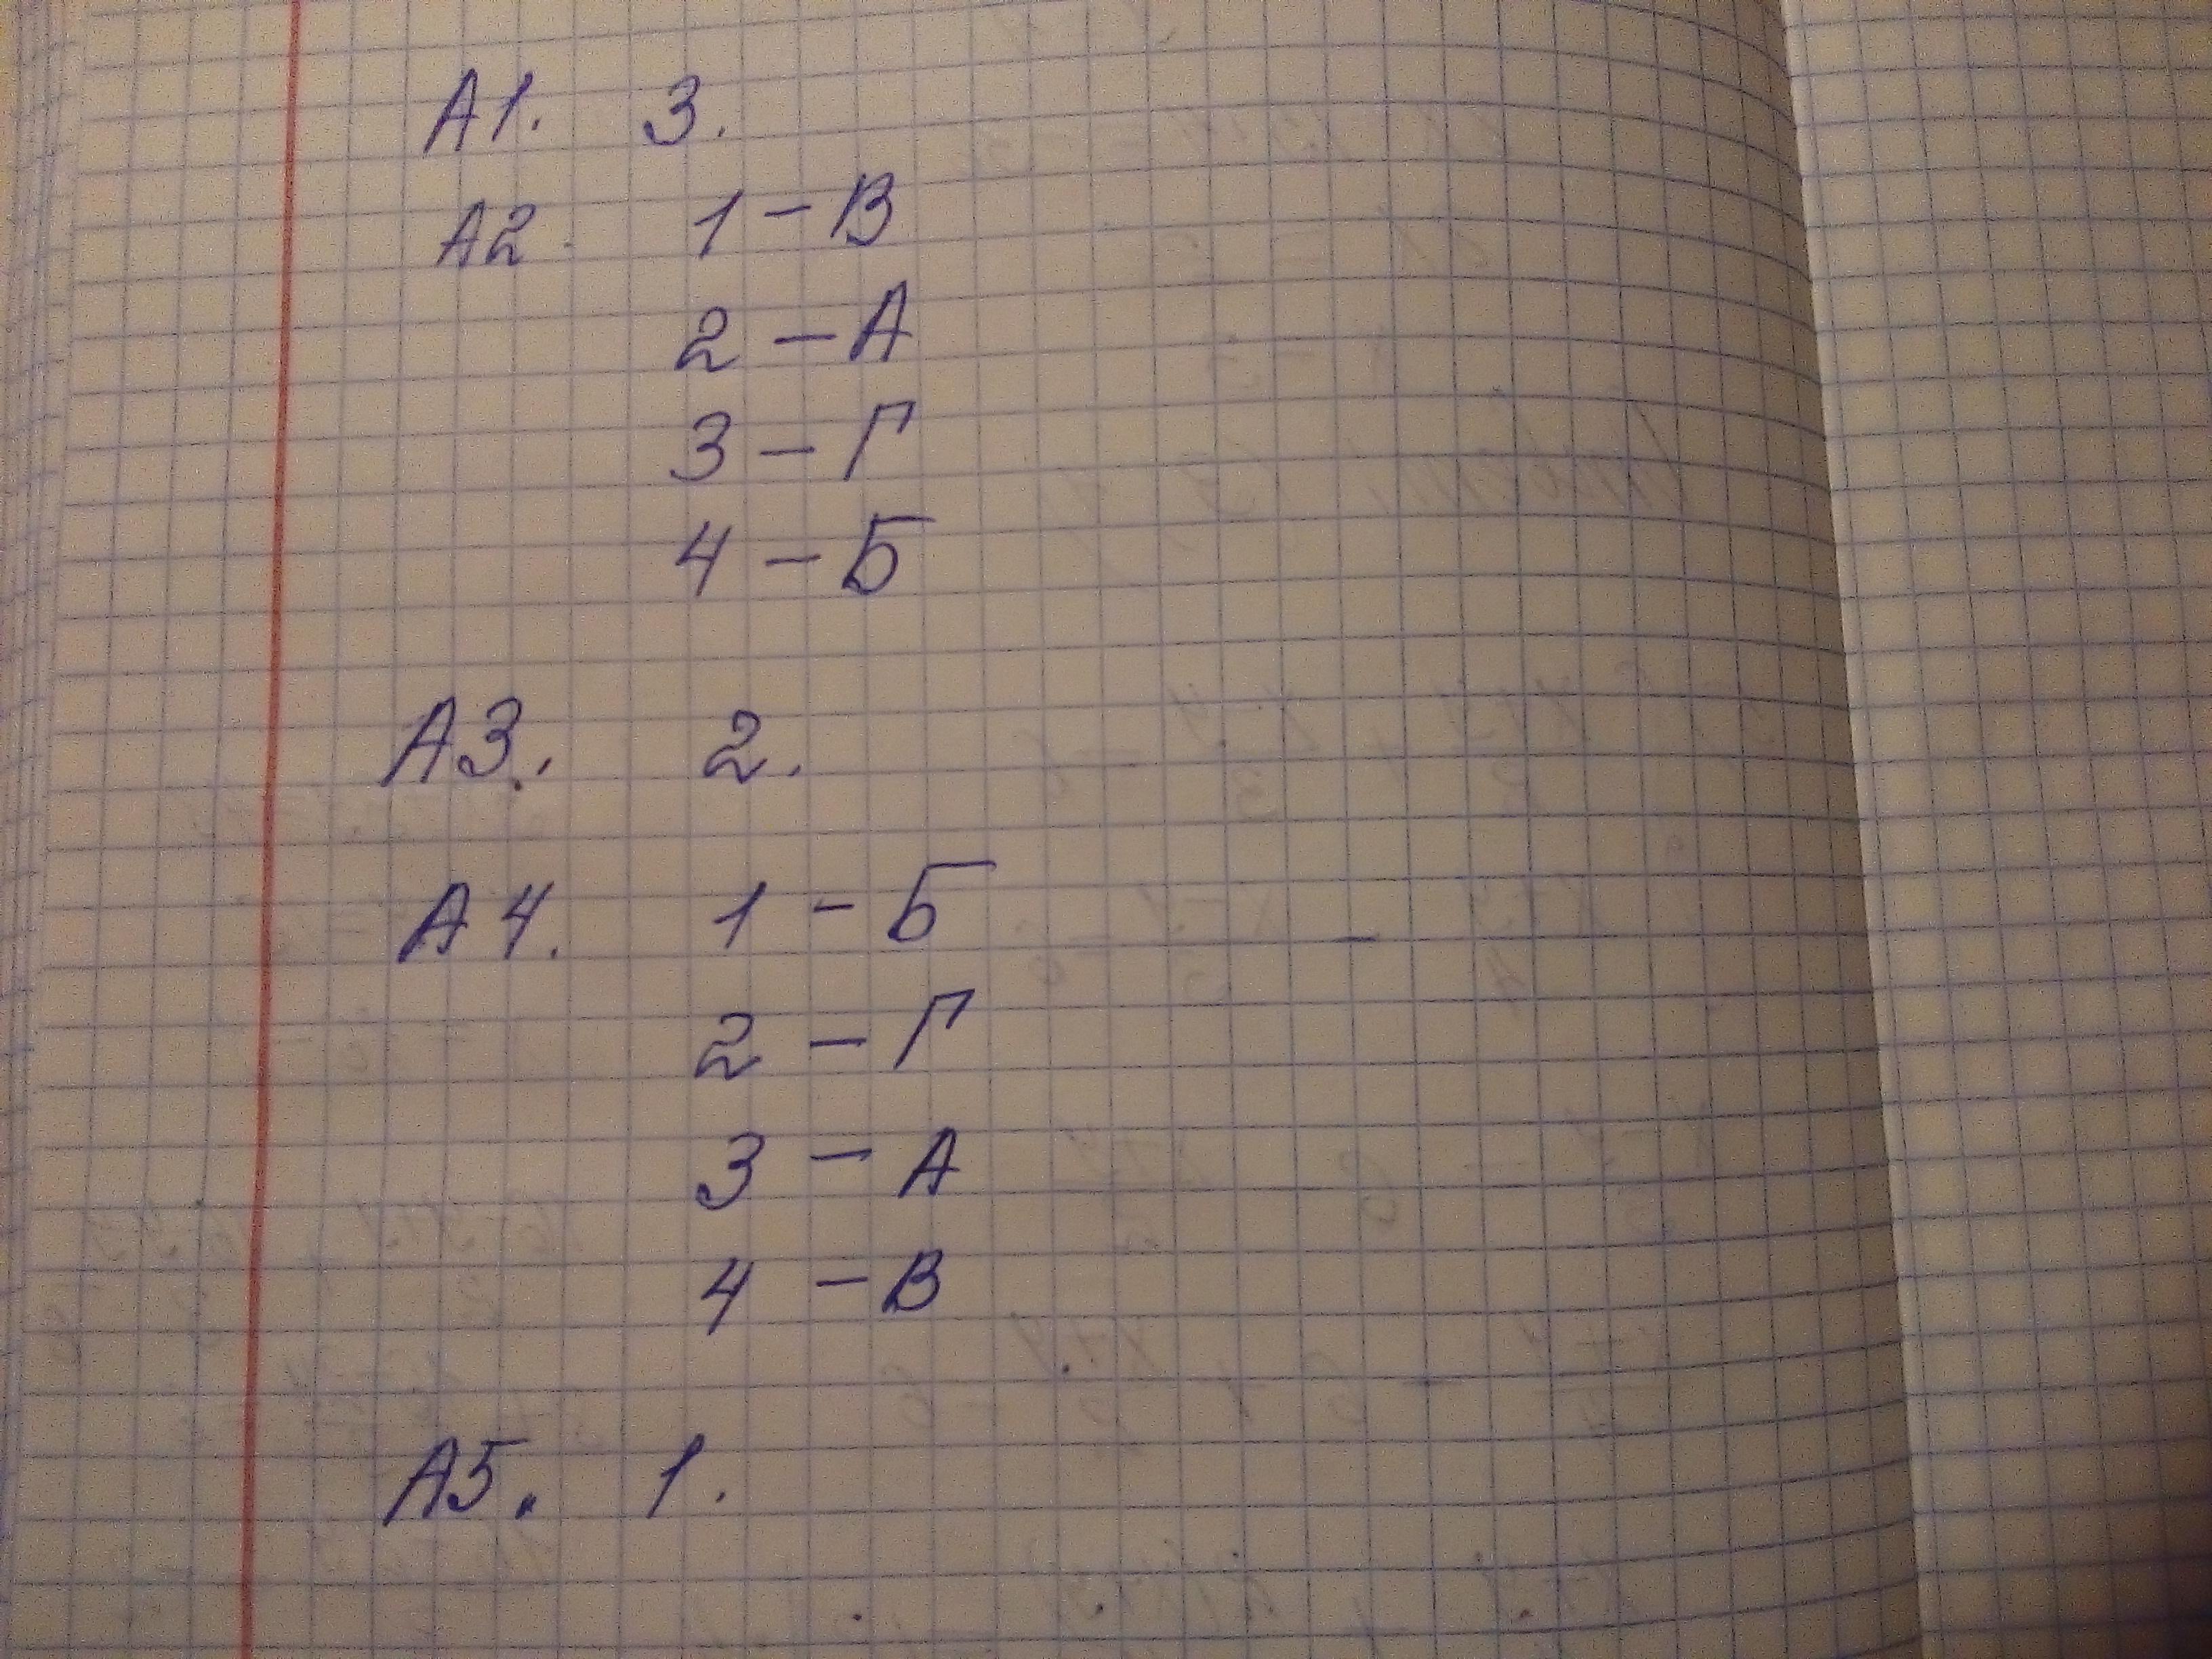 А1. 3.
А2. 1 – В
2 – А
3 – Г
4 – Б
А3. 2.
А4. 1 – Б
2 – Г
3 – А
4 – В
А5. 1.